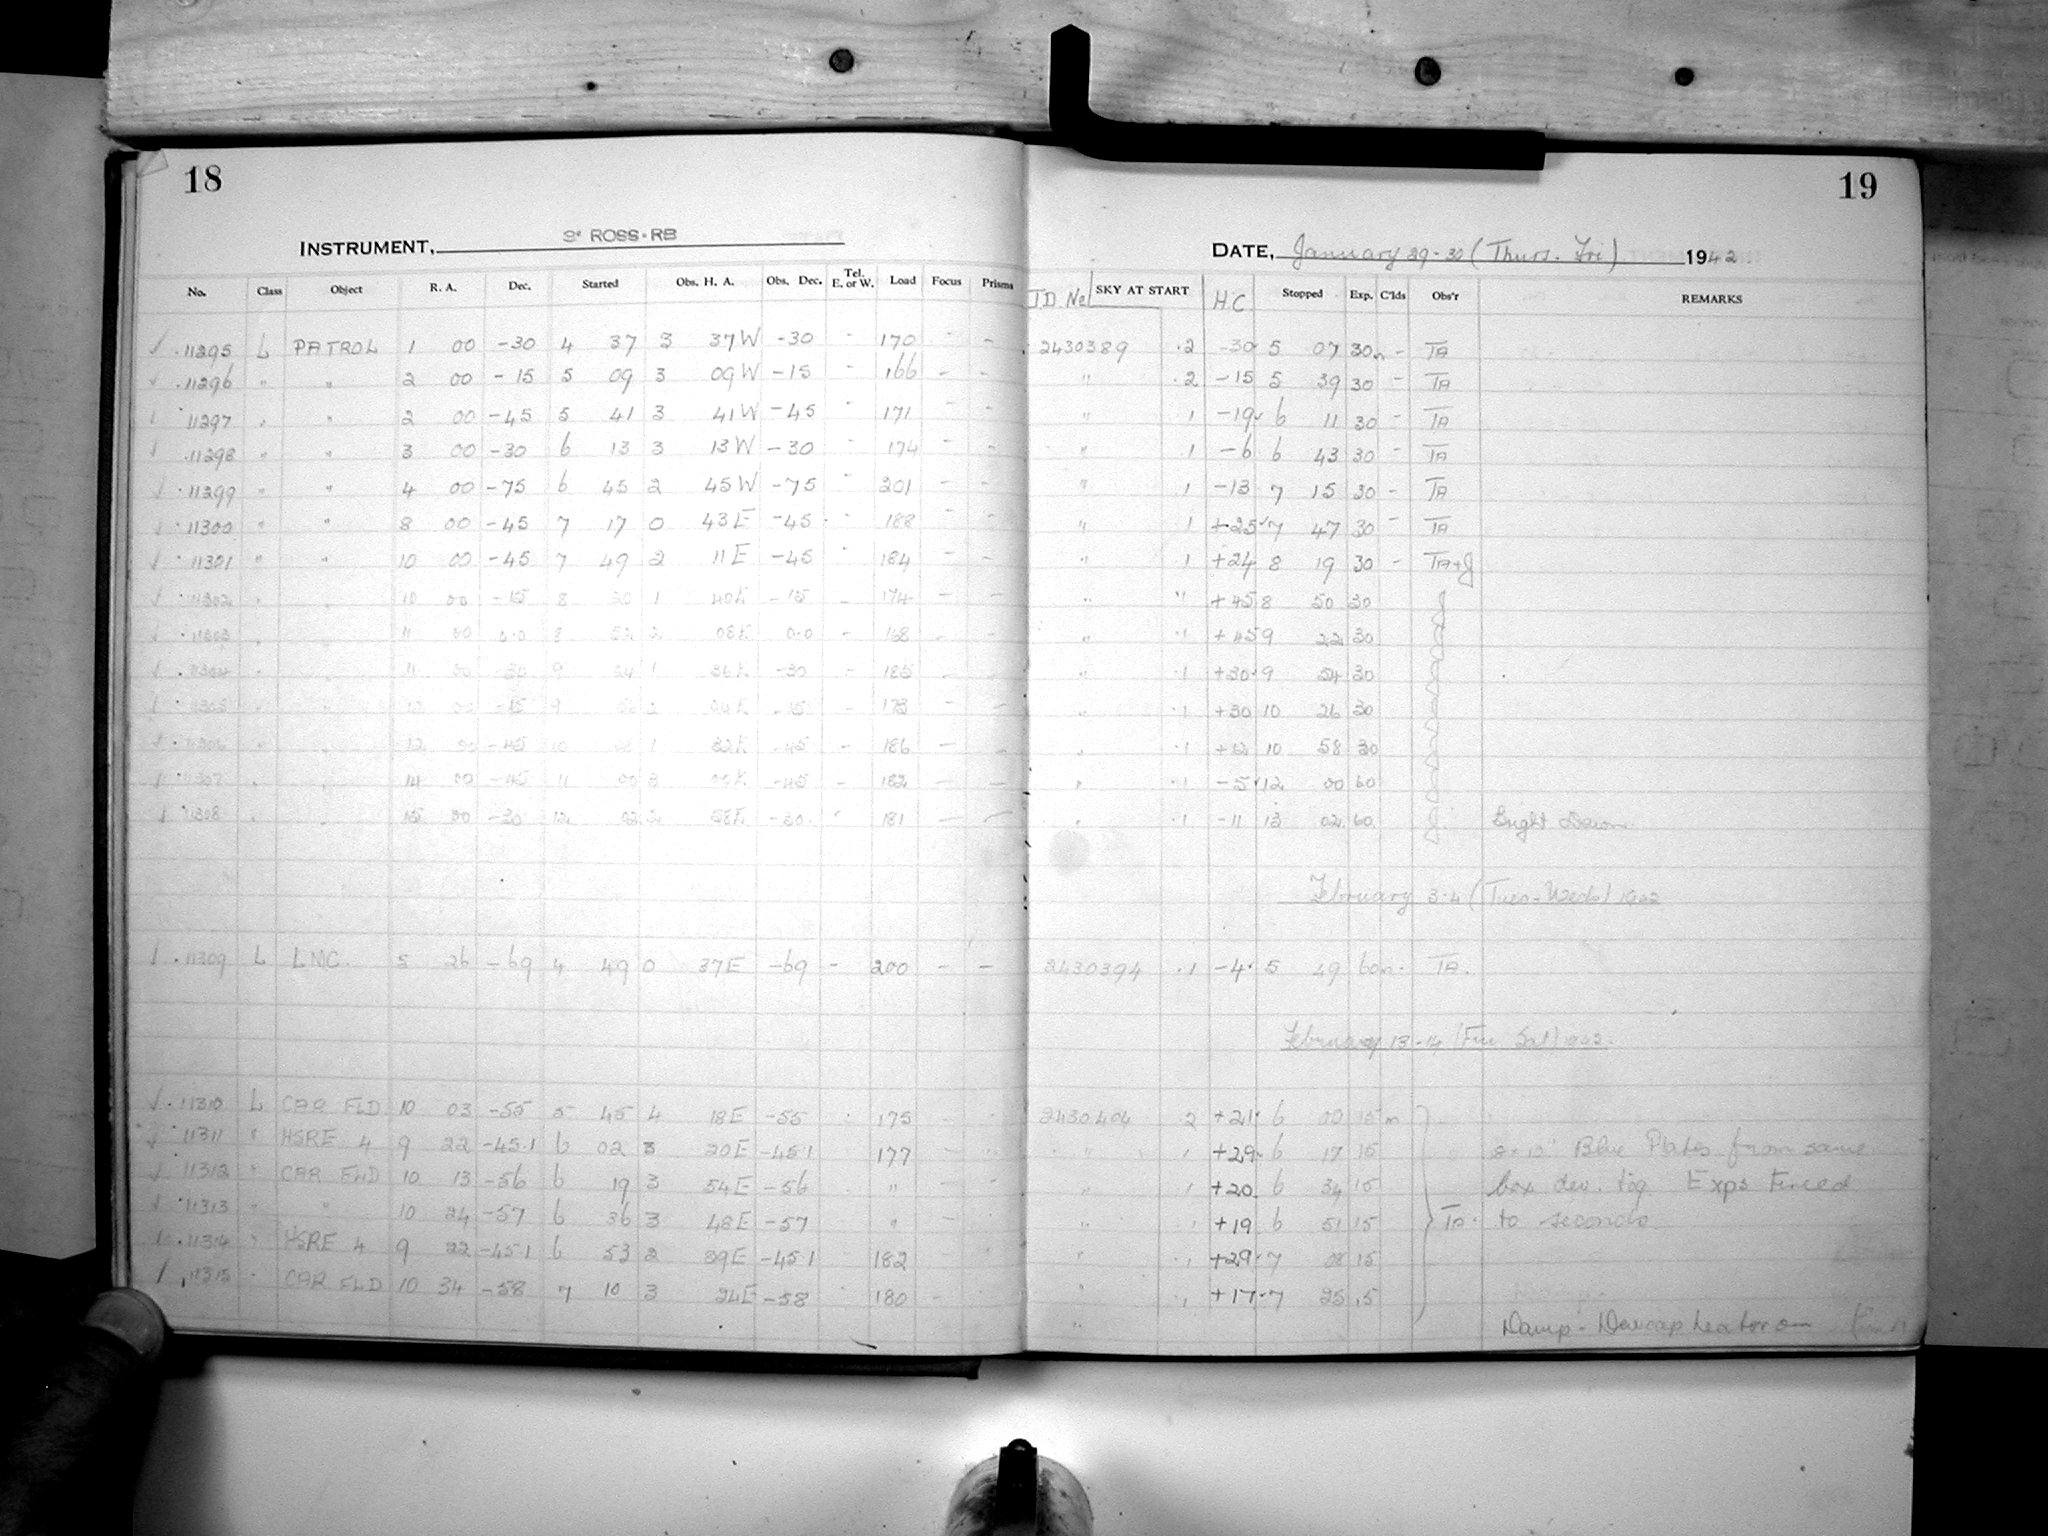 18
19
INSTRUMENT, 3" ROSS-RB
DATE, January 29-30 (Thurs. Fri) 1942
No. Class Object R. A. Dec. Started Obs. H. A. Obs. Dec. Tel. E. or W. Load Focus Prisms J D No SKY AT START H C Stopped Exp. C'lds Obs'r REMARKS
✓ 11295 L PATROL 1 00 -30 4 37 3 37W -30 - 170 - - 2430389 .2 -30 5 07 30m - TA
✓ 11296 " " 2 00 -15 5 09 3 09W -15 - 166 - - " .2 -15 5 39 30 - TA
11297 " " 2 00 -45 5 41 3 41W -45 - 171 - - " 1 -19 6 11 30 - TA
11298 " " 3 00 -30 6 13 3 13W -30 - 174 - " 1 -6 6 43 30 - TA
✓ 11299 " " 4 00 -75 6 45 2 45W -75 - 201 - - " 1 -13 7 15 30 - TA
✓ 11300 " " 8 00 -45 7 17 0 43E -45 - 188 - - " 1 +25 7 47 30 - TA
✓ 11301 " " 10 00 -45 7 49 2 11E -45 - 184 - - " 1 +24 8 19 30 - TA+J
✓ 11302 " " 10 00 -15 8 20 1 40E -15 - 174 - - " " +45 8 50 30
✓ 11303 " " 11 00 0.0 8 52 2 08E 0.0 - 168 - - " .1 +45 9 22 30
✓ 11304 " " 11 00 -30 9 24 1 36E -30 - 185 - - " .1 +30 9 54 30
✓ 11305 " " 00 -15 9 -15 - 173 - - " .1 +30 10 26 30
✓ 11306 " " 12 00 -45 10 1 32E -45 - 186 - - " .1 +12 10 58 30
✓ 11307 " " 14 00 -45 11 00 3 00E -45 - 182 - - " .1 -5 12 00 60
✓ 11308 " " 15 00 -30 12 02 2 58E -30 181 - - " .1 -11 13 02 60 Bright Dawn
February 3-4 (Tues-Weds) 1942
✓ 11309 L LMC 5 26 -69 4 49 0 37E -69 - 200 - - 2430394 .1 -4 5 49 60m TA.
February 13-14 (Fri Sat) 1942
✓ 11310 L CAR FLD 10 03 -55 5 45 4 18E -55 175 - 2430404 2 +21 6 00 15m
✓ 11311 " HSRE 4 9 22 -45.1 6 02 3 20E -45.1 177 - " +29 6 17 15 8x10 Blue Plates from same
✓ 11312 " CAR FLD 10 13 -56 6 19 3 54E -56 " - " +20 6 34 15 box dev. tog Exps timed
✓ 11313 " " 10 24 -57 6 36 3 48E -57 " - " +19 6 51 15 TA. to seconds
11314 " HSRE 4 9 22 -45.1 6 53 2 29E -45.1 182 " +29 7 08 15
11315 " CAR FLD 10 34 -58 7 10 3 24E -58 180 - " +17 7 25 15
Damp - Dewcap heater on